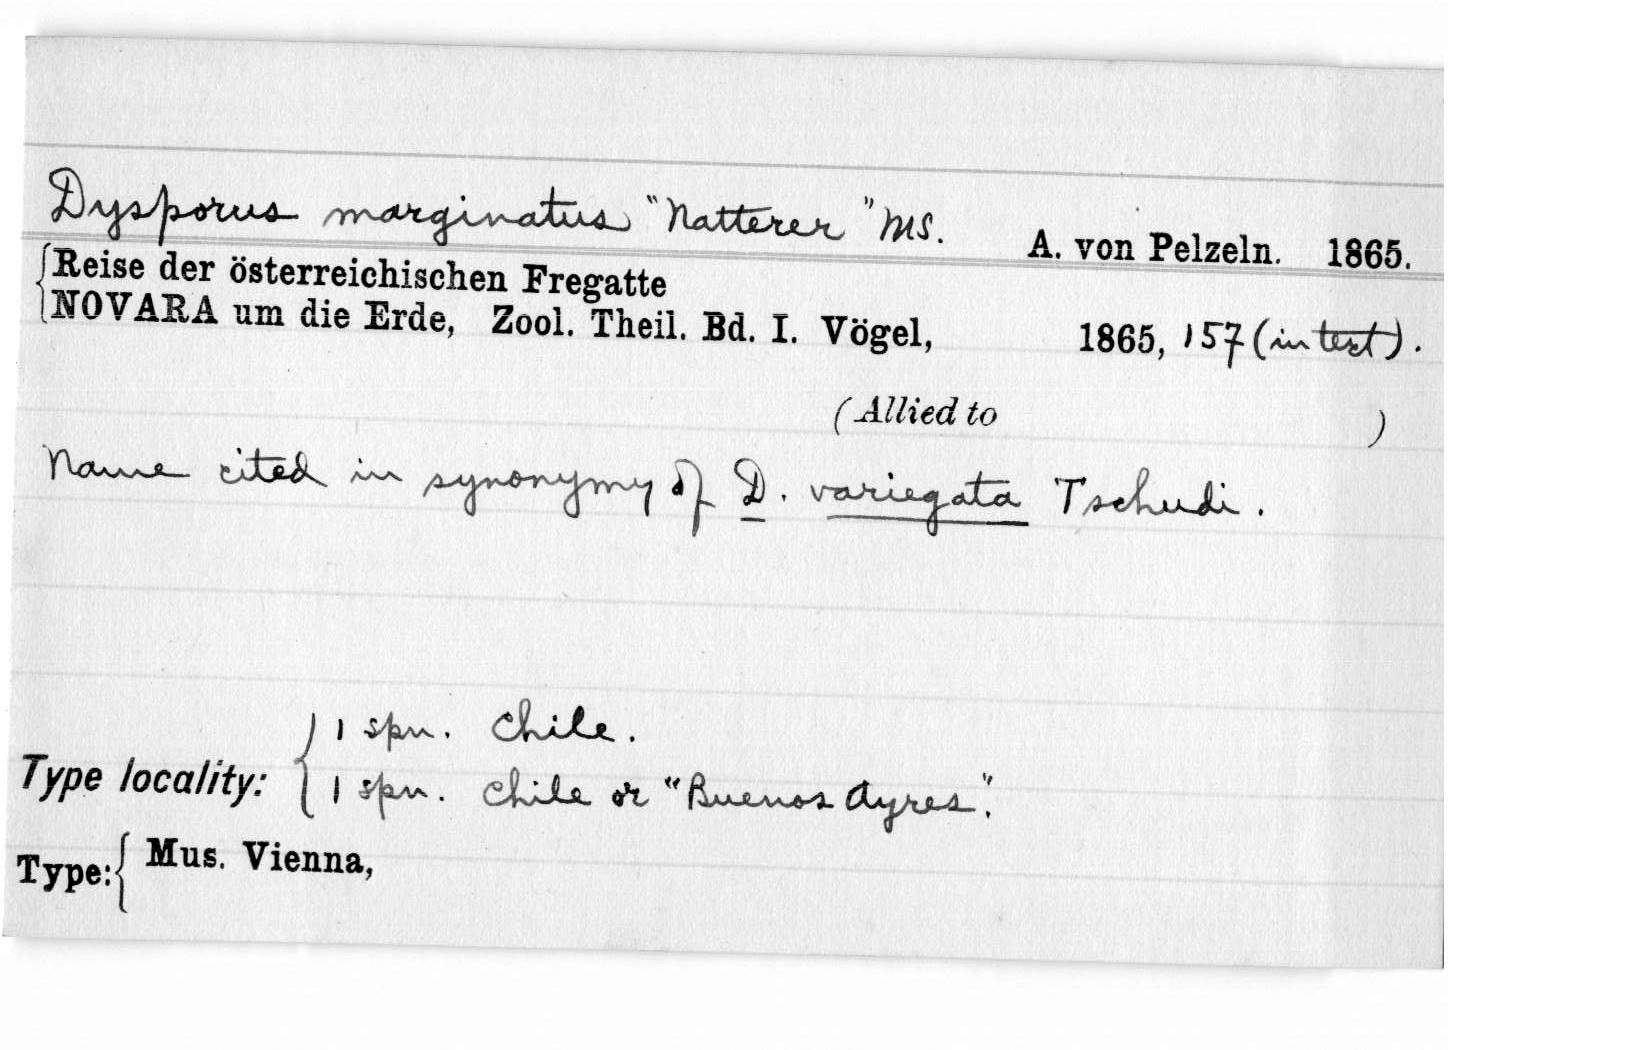 Dysporus marginatus "Natterer" MS. A. von Pelzeln. 1865.
Reise der österreichischen Fregatte
NOVARA um die Erde, Zool. Theil. Bd. I. Vögel, 1865, 157 (in text).
(Allied to )
Name cited in synonymy of D. variegata Tschudi.
1 spn. Chile.
Type locality: 1 spn. Chile or "Buenos Ayres".
Type: Mus. Vienna,